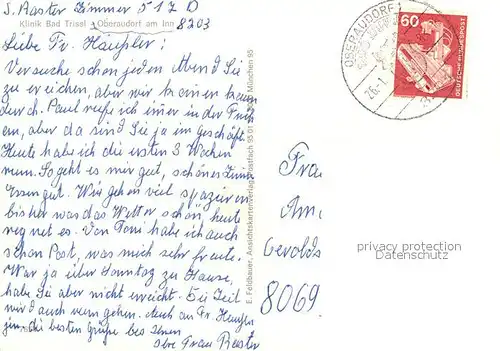 S. Raster Zimmer 517 D
Klinik Bad Trissl Oberaudorf am Inn 8203
Liebe Fr. Häußler!
Versuche schon jeden Abend Sie
zu erreichen, aber wir kommen kaum
durch. Paul rufe ich immer in der Früh
an, aber da sind Sie ja im Geschäft.
Heute habe ich die ersten 3 Wochen
rum. So geht es mir gut, schönes Zimmer
Essen gut. Wir gehen viel spazieren
bisher war das Wetter schön, heute
regnet es. Von Toni habe ich auch
schon Post, was mich sehr freute.
War ja über Sonntag zu Hause,
habe Sie aber nicht erreicht. Die Zeit
wird auch rum gehen. Auch an Fr.
die besten Grüße bes
Ihre Frau Raster
E. Feldbauer, Ansichtskartenverlag, Postfach 95 01 München 95
OBERAUDORF
26.-1.
60
DEUTSCHE BUNDESPOST
Frau
Am
Gerolds
8069
privacy protection
Datenschutz